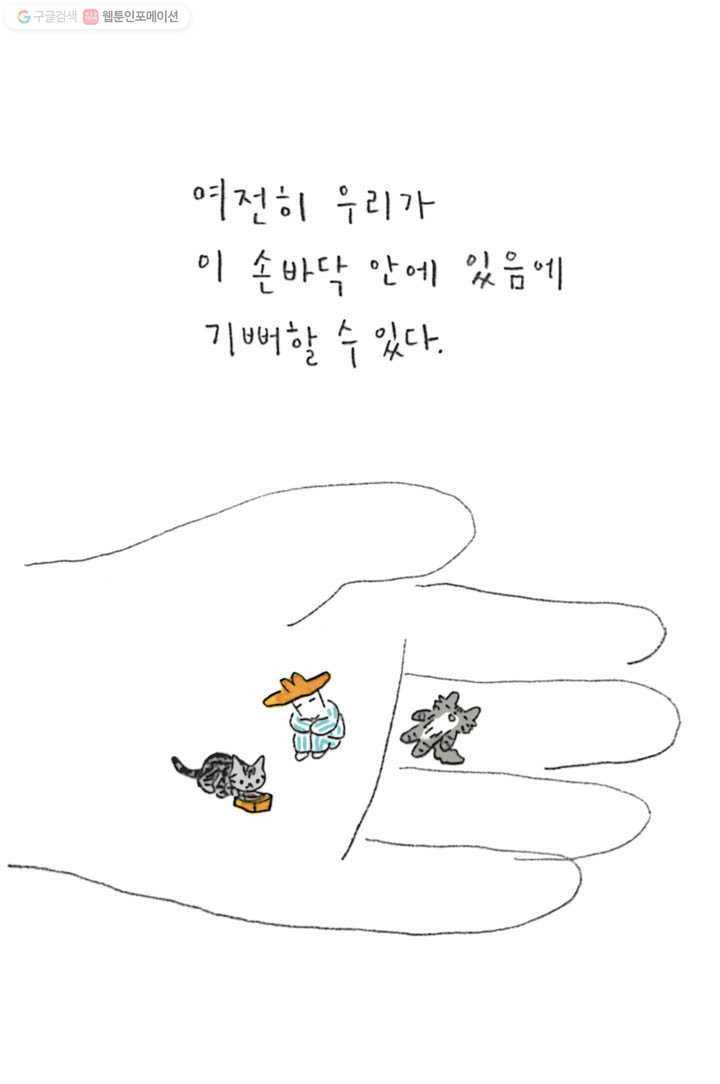 구글검색 웹툰인포메이션
여전히 우리가
이 손바닥 안에 있음에
기뻐할 수 있다.